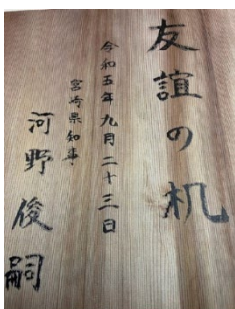 友誼の机
令和五年九月二十三日
宮崎県知事
河野俊嗣